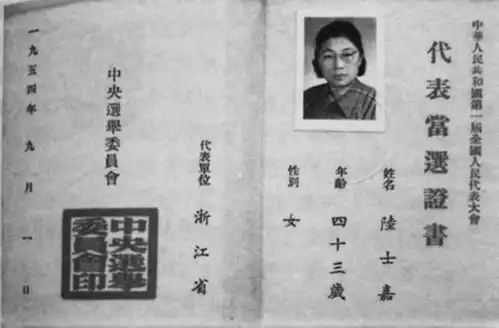 中華人民共和國第一屆全國人民代表大會
代表當選證書
姓名 陸士嘉
年齡 四十三歲
性別 女
代表單位 浙江省
中央選舉委員會
中央選舉
委員會印
一九五四年九月一日